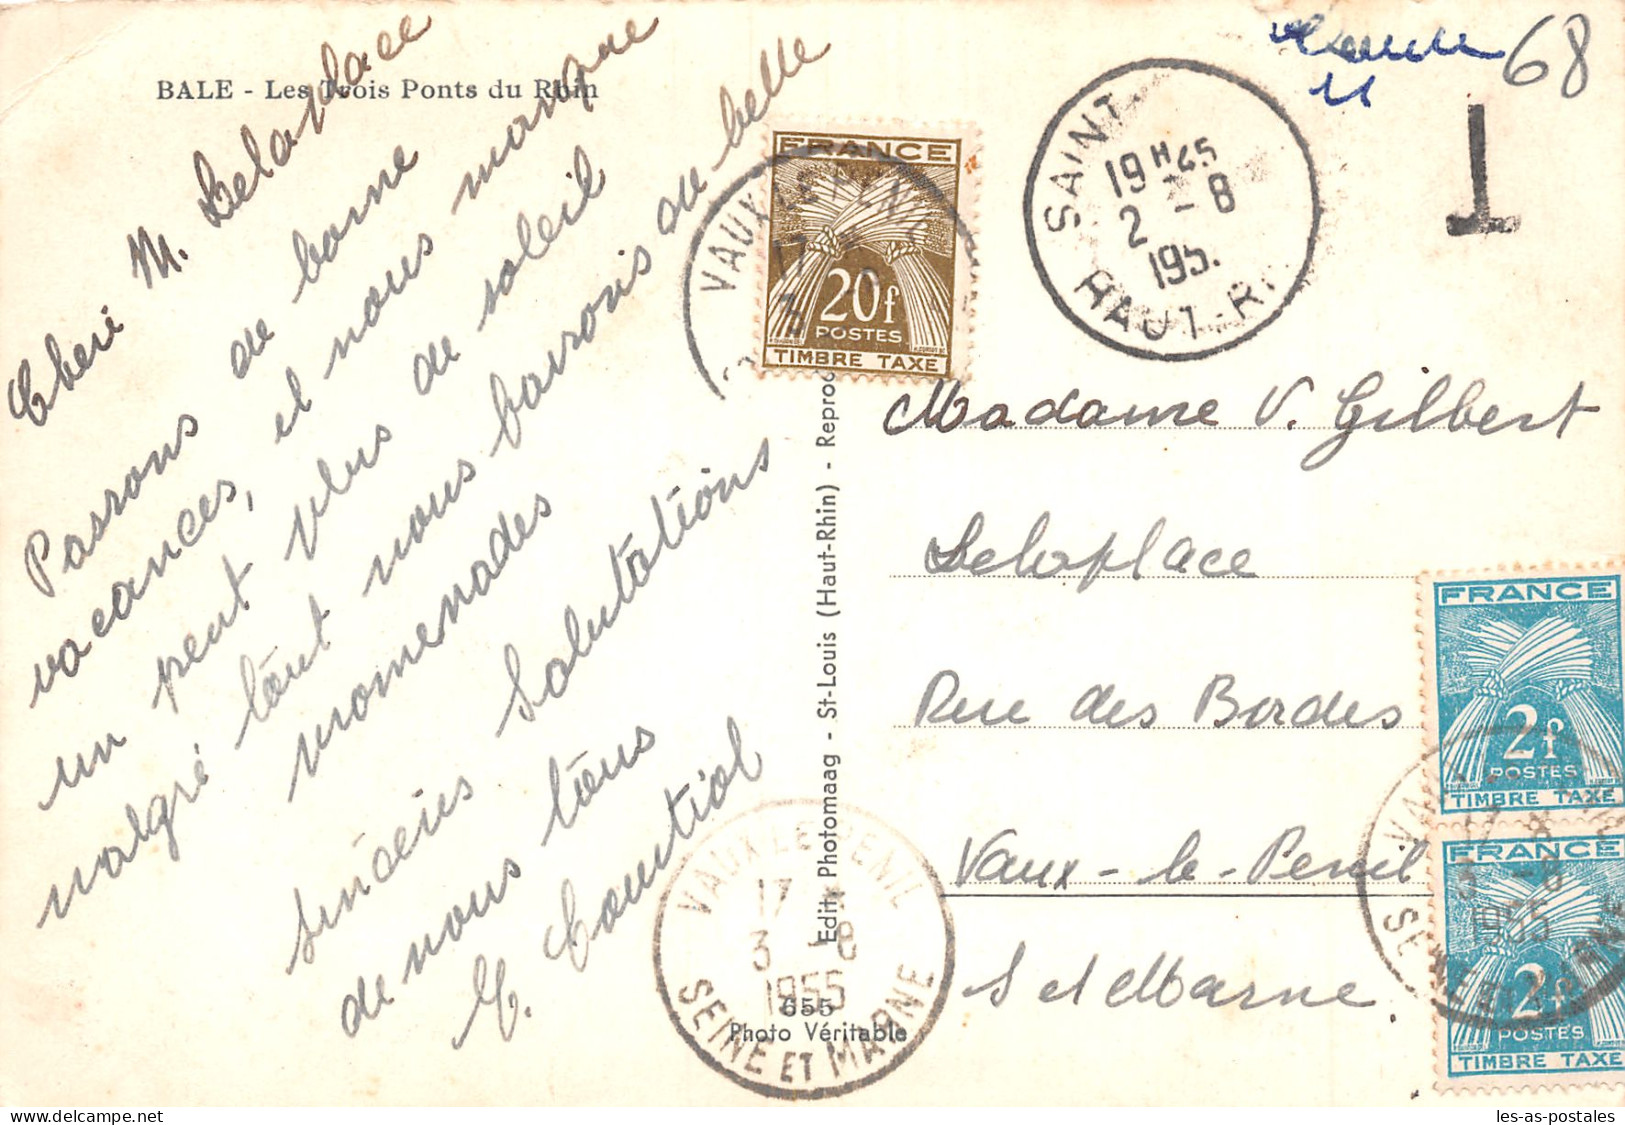 BALE - Les Trois Ponts du Rhin
Cheri M. Delaplace
Passons de bonne
vacances, et nous manque
un peut plus de soleil
malgré tout nous bavrois de belle
momenades
sincèus Salutations
de nous tous
Edit. Photomaag - St-Louis (Haut-Rhin) - Reproc
655
Photo Véritable
68
T
SAINT
19 H 45
2 - 8
195.
HAUT-R
FRANCE
20f
POSTES
TIMBRE TAXE
VAUX LE PENIL
17
3
Madame V. Gilbert
Delaplace
Rue des Bordes
Vaux-le-Penil
S et Marne
FRANCE
2f
POSTES
TIMBRE TAXE
FRANCE
2f
POSTES
TIMBRE TAXE
VAUX LE PENIL
17 H
3 - 8
1955
SEINE ET MARNE
17
3 - 8
1955
SEINE ET MARNE
les-as-postales